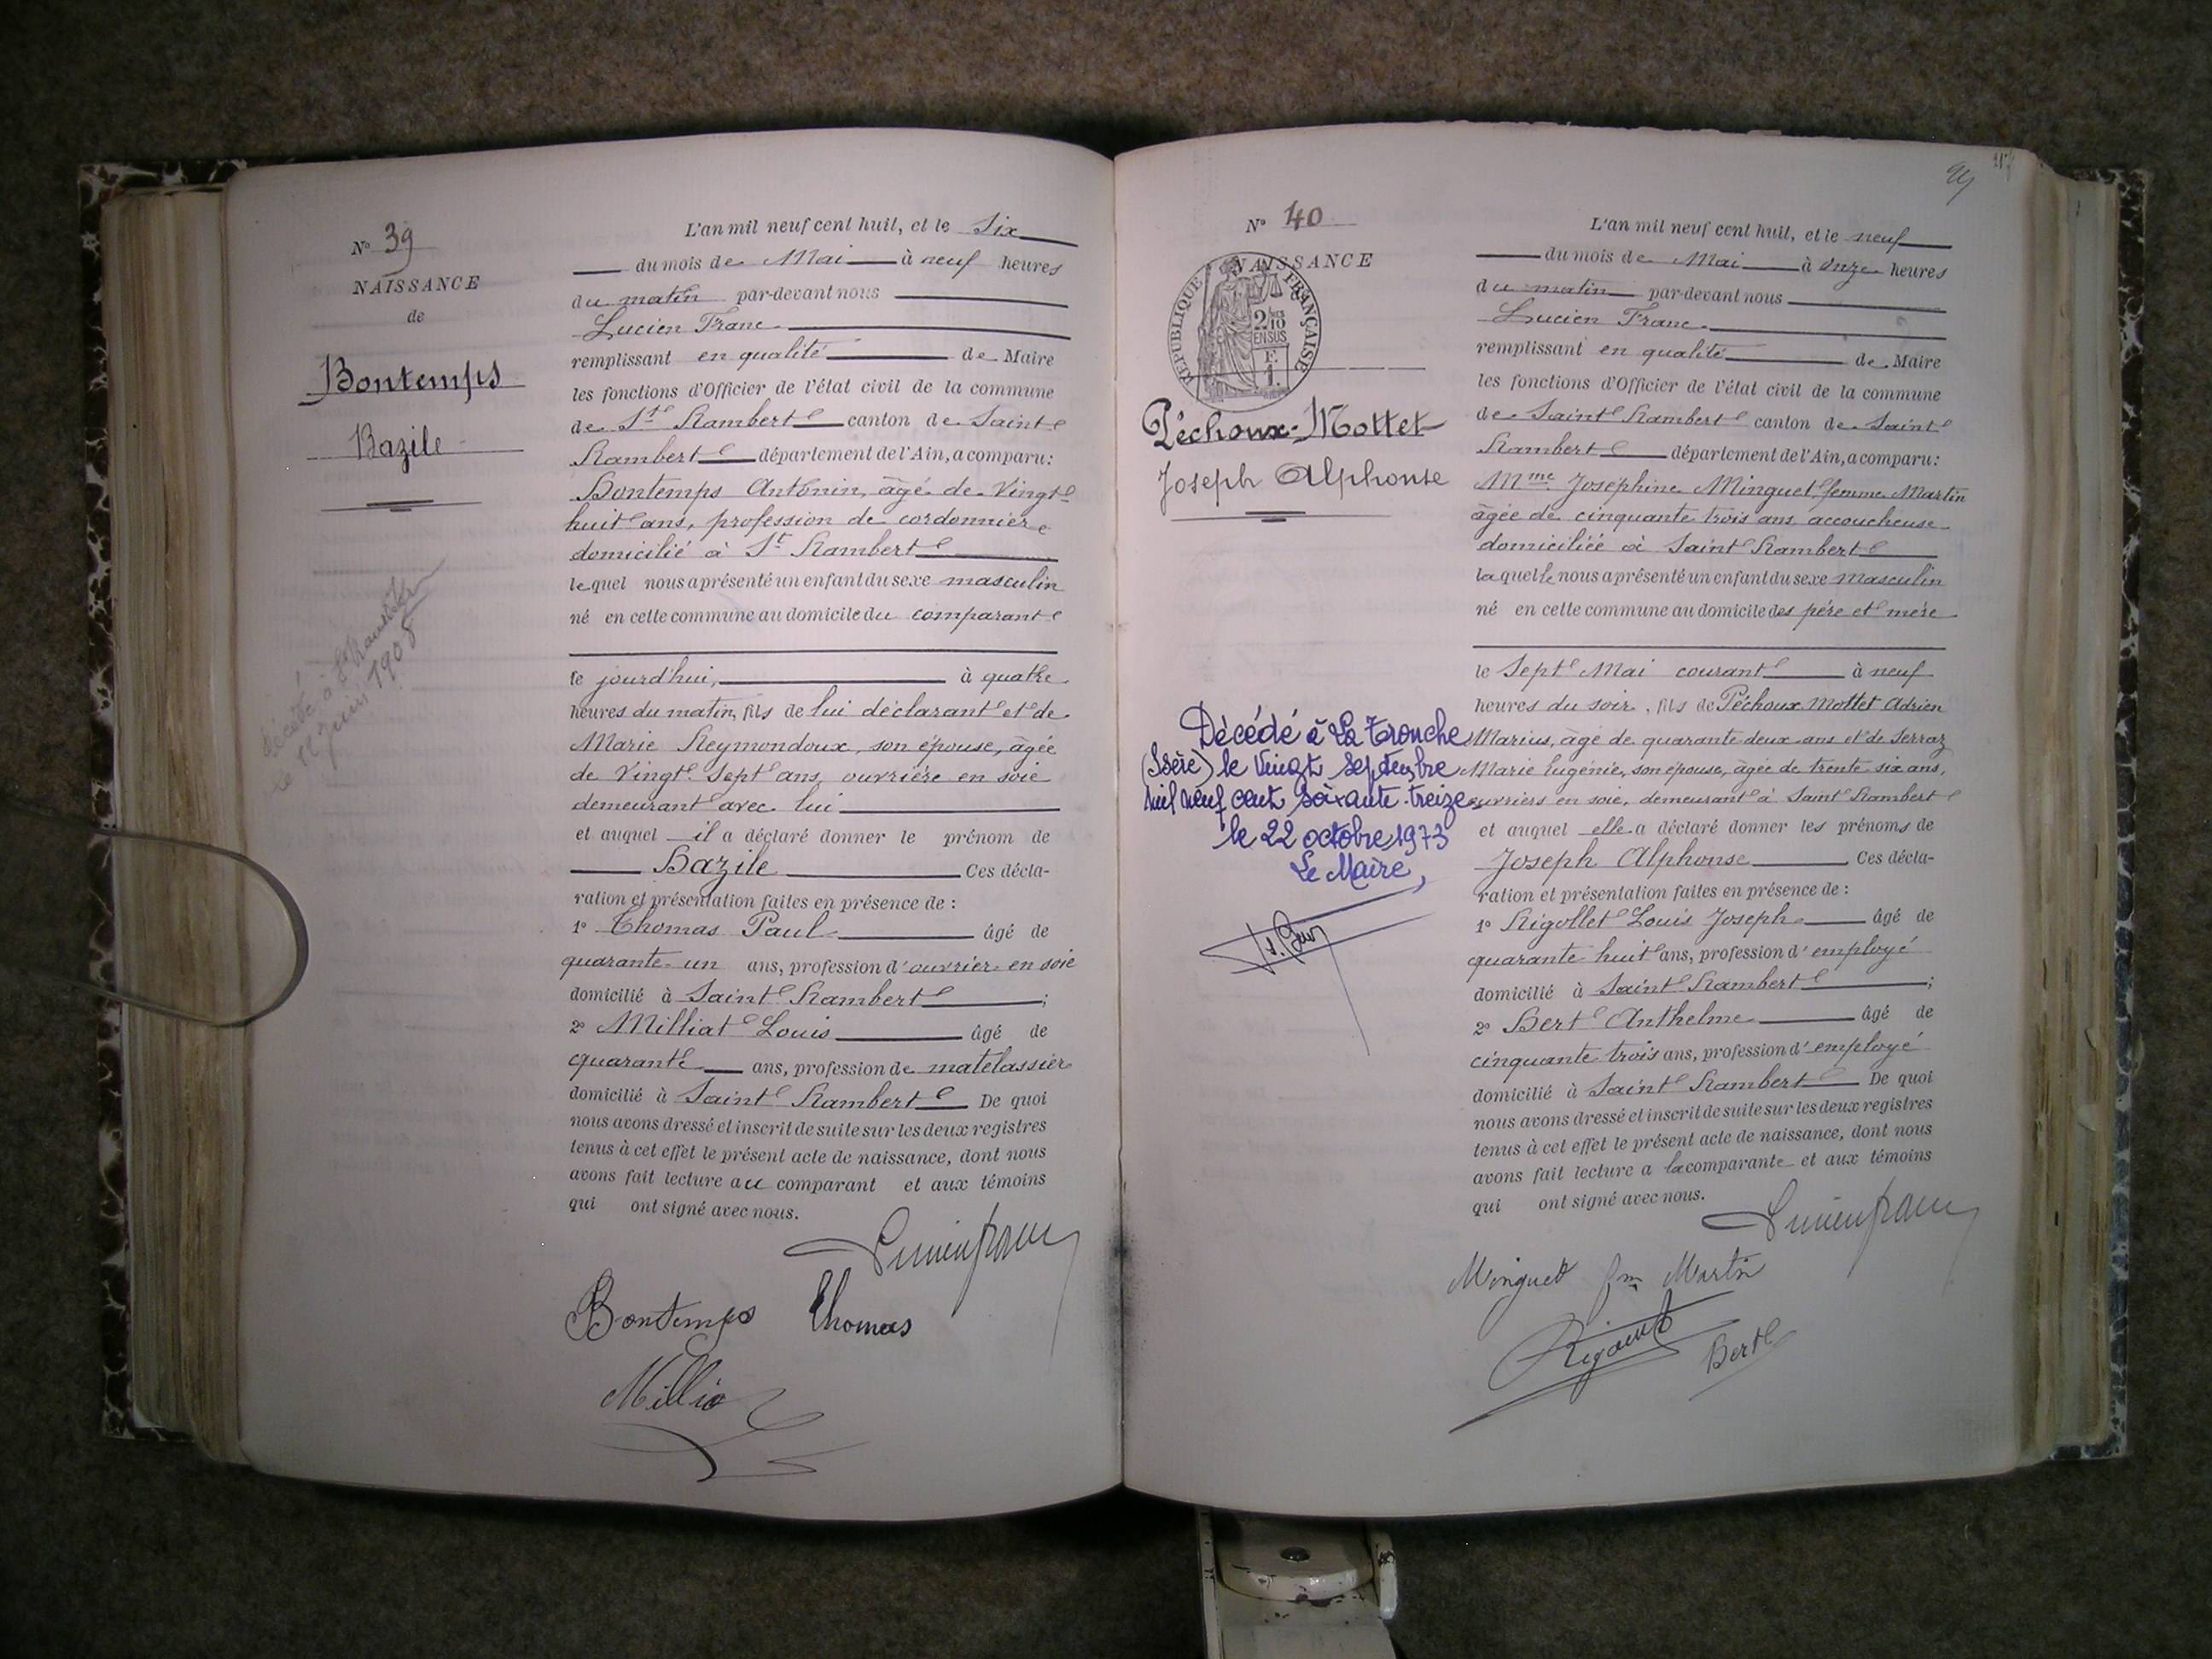 N° 39
NAISSANCE
de
Bontemps
Bazile
décédé à St Rambert
le 11 juin 1908
L'an mil neuf cent huit, et le Six
du mois de Mai à neuf heures
du matin par-devant nous
Lucien Franc
remplissant en qualité de Maire
les fonctions d'Officier de l'état civil de la commune
de St Rambert canton de Saint
Rambert département de l'Ain, a comparu:
Bontemps Antonin, âgé de Vingt
huit ans, profession de cordonnier
domicilié à St Rambert
lequel nous a présenté un enfant du sexe masculin
né en cette commune au domicile du comparant
le jourd'hui, à quatre
heures du matin, fils de lui déclarant et de
Marie Reymondoux, son épouse, âgée
de Vingt Sept ans, ouvrière en soie
demeurant avec lui
et auquel il a déclaré donner le prénom de
Bazile Ces décla-
ration et présentation faites en présence de :
1° Thomas Paul âgé de
quarante un ans, profession d'ouvrier en soie
domicilié à Saint Rambert ;
2° Milliat Louis âgé de
quarante ans, profession de matelassier
domicilié à Saint Rambert De quoi
nous avons dressé et inscrit de suite sur les deux registres
tenus à cet effet le présent acte de naissance, dont nous
avons fait lecture au comparant et aux témoins
qui ont signé avec nous.
Lucien Franc
Bontemps Thomas
N° 40
NAISSANCE
RÉPUBLIQUE FRANÇAISE
2/10
EN SUS
F.
1.
Péchoux-Mottet
Joseph Alphonse
Décédé à La Tronche
(Isère) le Vingt septembre
mil neuf cent soixante-treize
le 22 octobre 1973
Le Maire,
L'an mil neuf cent huit, et le neuf
du mois de Mai à onze heures
du matin par-devant nous
Lucien Franc
remplissant en qualité de Maire
les fonctions d'Officier de l'état civil de la commune
de Saint Rambert canton de Saint
Rambert département de l'Ain, a comparu:
Mme Joséphine Minguet femme Martin
âgée de cinquante trois ans accoucheuse
domiciliée à Saint Rambert
laquelle nous a présenté un enfant du sexe masculin
né en cette commune au domicile des père et mère
le Sept Mai courant à neuf
heures du soir, fils de Péchoux Mottet Adrien
Marius, âgé de quarante deux ans et de Serraz
Marie Eugénie, son épouse, âgée de trente six ans,
ouvriers en soie, demeurant à Saint Rambert
et auquel elle a déclaré donner les prénoms de
Joseph Alphonse Ces décla-
ration et présentation faites en présence de :
1° Rigollet Louis Joseph âgé de
quarante huit ans, profession d'employé
domicilié à Saint Rambert ;
2° Bert Anthelme âgé de
cinquante trois ans, profession d'employé
domicilié à Saint Rambert De quoi
nous avons dressé et inscrit de suite sur les deux registres
tenus à cet effet le présent acte de naissance, dont nous
avons fait lecture a la comparante et aux témoins
qui ont signé avec nous.
Lucien Franc
Minguet fme Martin
Bert